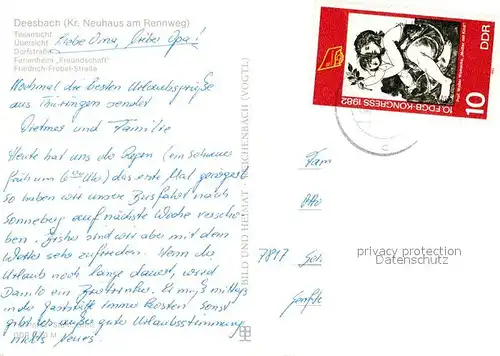 Deesbach (Kr. Neuhaus am Rennweg)
Teilansicht
Übersicht
Dorfstraße
Ferienheim „Freundschaft"
Friedrich-Fröbel-Straße
Liebe Oma, lieber Opa!
Nochmal die besten Urlaubsgrüße
aus Thüringen sendet
Dietmar und Familie
Heute hat uns der Regen (ein Schauer
früh um 6⁰⁰ Uhr) das erste Mal
so haben wir unsere Busfahrt nach
Sonneberg auf nächste Woche verscho
ben. Bisher sind wir aber mit dem
Wetter sehr zufrieden. Wenn der
Urlaub noch lange dauert, wird
Danilo ein Biertrinker. Er muß mittags
in der Gaststätte immer kosten. Sonst
gibt es außer guter Urlaubsstimmung
nichts neues.
BILD UND HEIMAT · REICHENBACH (VOGTL)
10. FDGB-KONGRESS 1982
DDR
10
Fam
Otto
7817
privacy protection
Datenschutz